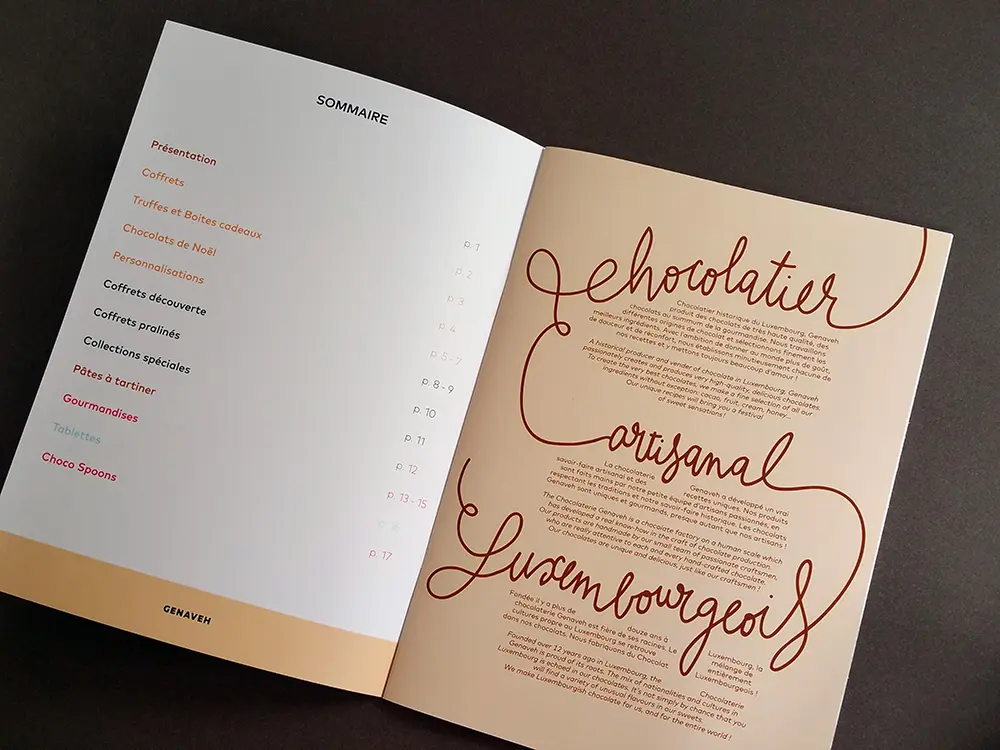 SOMMAIRE
Présentation
p. 1
Coffrets
p. 2
Truffes et Boites cadeaux
p. 3
Chocolats de Noël
p. 4
Personnalisations
p. 5 - 7
Coffrets découverte
p. 8 - 9
Coffrets pralinés
p. 10
Collections spéciales
p. 11
Pâtes à tartiner
p. 12
Gourmandises
p. 13 - 15
Tablettes
Choco Spoons
p. 17
GENAVEH
Chocolatier
Chocolatier historique du Luxembourg, Genaveh
produit des chocolats de très haute qualité, des
chocolats au summum de la gourmandise. Nous travaillons
différentes origines de chocolat et sélectionnons finement les
meilleurs ingrédients. Avec l'ambition de donner au monde plus de goût,
de douceur et de réconfort, nous établissons minutieusement chacune de
nos recettes et y mettons toujours beaucoup d'amour !
A historical producer and vender of chocolate in Luxembourg, Genaveh
passionately creates and produces very high-quality, delicious chocolates.
To create the very best chocolates, we make a fine selection of all our
ingredients without exception: cacao, fruit, cream, honey...
Our unique recipes will bring you a festival
of sweet sensations!
artisanal
La chocolaterie Genaveh a développé un vrai
savoir-faire artisanal et des recettes uniques. Nos produits
sont faits mains par notre petite équipe d'artisans passionnés, en
respectant les traditions et notre savoir-faire historique. Les chocolats
Genaveh sont uniques et gourmands, presque autant que nos artisans !
The Chocolaterie Genaveh is a chocolate factory on a human scale which
has developed a real know-how in the craft of chocolate production.
Our products are handmade by our small team of passionate craftsmen,
who are really attentive to each and every hand-crafted chocolate.
Our chocolates are unique and delicious, just like our craftsmen !
Luxembourgeois
Fondée il y a plus de douze ans à Luxembourg, la
chocolaterie Genaveh est fière de ses racines. Le mélange de
cultures propre au Luxembourg se retrouve entièrement
dans nos chocolats. Nous fabriquons du Chocolat Luxembourgeois !
Founded over 12 years ago in Luxembourg, the Chocolaterie
Genaveh is proud of its roots. The mix of nationalities and cultures in
Luxembourg is echoed in our chocolates. It's not simply by chance that you
will find a variety of unusual flavours in our sweets.
We make Luxembourgish chocolate for us, and for the entire world !